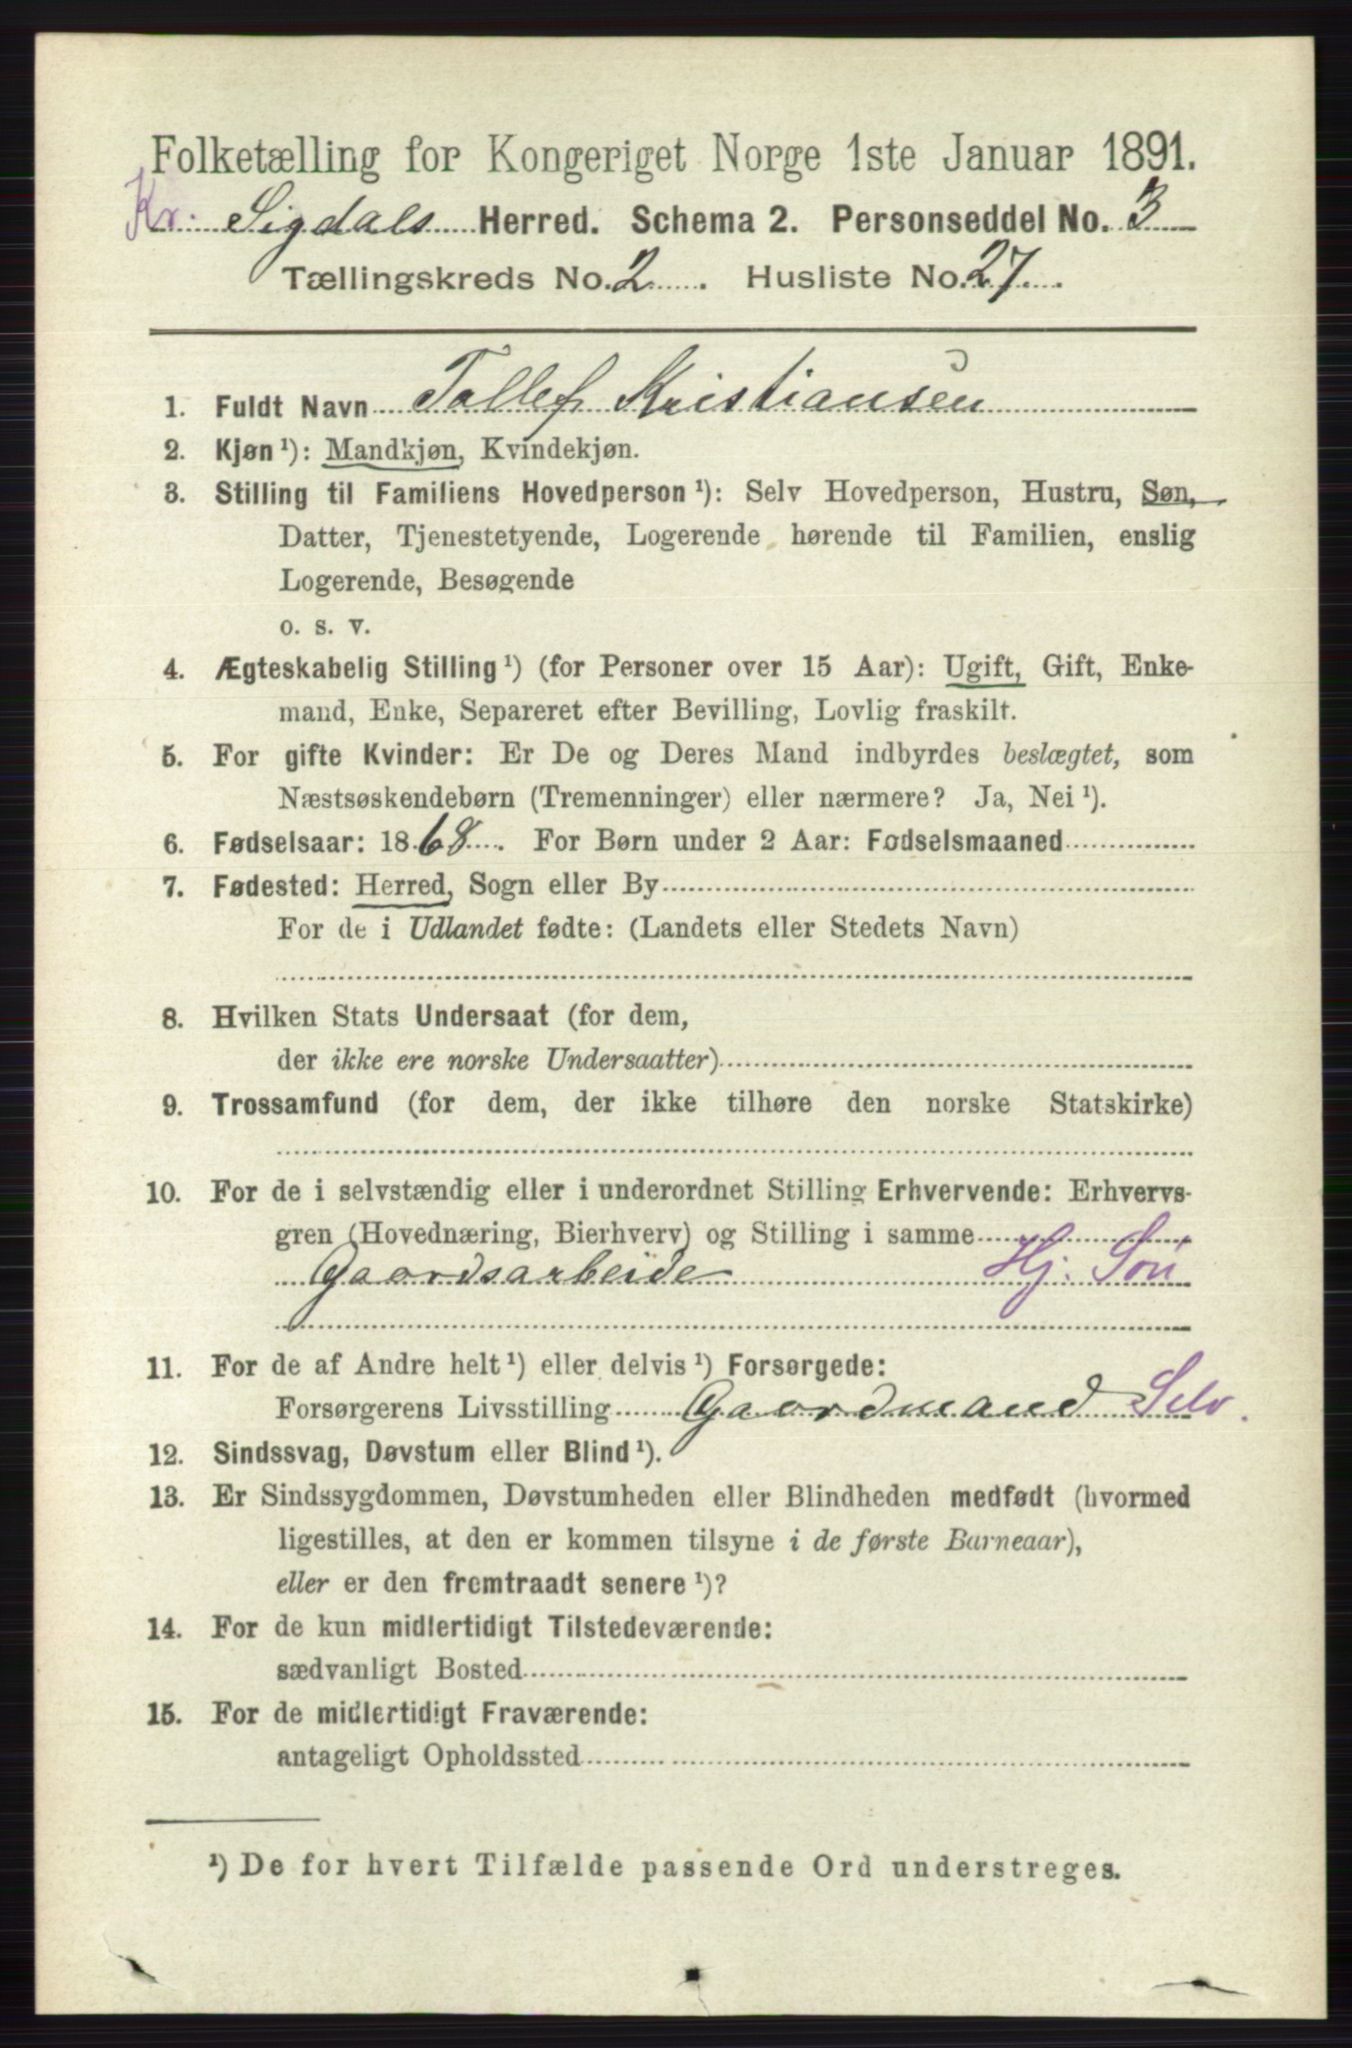 Folketælling for Kongeriget Norge 1ste Januar 1891.
Kr. Sigdals Herred. Schema 2. Personseddel No. 3
Tællingskreds No. 2 . Husliste No. 27 .
1. Fuldt Navn Tollef Kristiansen
2. Kjøn ¹): Mandkjøn, Kvindekjøn.
3. Stilling til Familiens Hovedperson ¹): Selv Hovedperson, Hustru, Søn,
Datter, Tjenestetyende, Logerende hørende til Familien, enslig
Logerende, Besøgende
o. s. v.
4. Ægteskabelig Stilling ¹) (for Personer over 15 Aar): Ugift, Gift, Enke-
mand, Enke, Separeret efter Bevilling, Lovlig fraskilt.
5. For gifte Kvinder: Er De og Deres Mand indbyrdes beslægtet, som
Næstsøskendebørn (Tremenninger) eller nærmere? Ja, Nei ¹).
6. Fødselsaar: 1868 . For Børn under 2 Aar: Fødselsmaaned
7. Fødested: Herred, Sogn eller By
For de i Udlandet fødte: (Landets eller Stedets Navn)
8. Hvilken Stats Undersaat (for dem,
der ikke ere norske Undersaatter)
9. Trossamfund (for dem, der ikke tilhøre den norske Statskirke)
10. For de i selvstændig eller i underordnet Stilling Erhvervende: Erhvervs-
gren (Hovednæring, Bierhverv) og Stilling i samme
Gaardsarbeide Hj. Søn
11. For de af Andre helt ¹) eller delvis ¹) Forsørgede:
Forsørgerens Livsstilling Gaardmand Selv.
12. Sindssvag, Døvstum eller Blind ¹).
13. Er Sindssygdommen, Døvstumheden eller Blindheden medfødt (hvormed
ligestilles, at den er kommen tilsyne i de første Barneaar),
eller er den fremtraadt senere ¹)?
14. For de kun midlertidigt Tilstedeværende:
sædvanligt Bosted
15. For de midlertidigt Fraværende:
antageligt Opholdssted
¹) De for hvert Tilfælde passende Ord understreges.